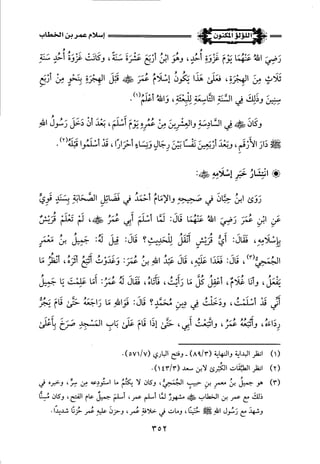 اللؤلؤ المكنون
إسلام عمر بن الخطاب
رَضِيَ اللهُ عَنْهُمَا يَوْمَ غَزْوَةِ أُحُدٍ، وَهُوَ ابْنُ أَرْبَعَ عَشْرَةَ سَنَةٍ، وَكَانَتْ غَزْوَةُ أُحُدٍ سَنَةَ
ثَلَاثٍ مِنَ الهِجْرَةِ، فَعَلَى هَذَا يَكُونُ إِسْلَامُ عُمَرَ ﷺ قَبْلَ الهِجْرَةِ بِنَحْوِ مِنْ أَرْبَعِ
سِنِينَ وَذَلِكَ فِي السَّنَةِ التَّاسِعَةِ لِلْبِعْثَةِ، وَاللهُ أَعْلَمُ(١).
وَكَانَ ﷺ فِي السَّادِسَةِ وَالعِشْرِينَ مِنْ عُمُرِهِ يَوْمَ أَسْلَمَ، بَعْدَ أَنْ دَخَلَ رَسُولُ اللهِ
ﷺ دَارَ الأَرْقَمِ، وَبَعْدَ أَرْبَعِينَ نَفْسًا بَيْنَ رِجَالٍ وَنِسَاءٍ أَحْرَارًا، قَدْ أَسْلَمُوا قَبْلَهُ(٢).
انْتِشَارُ خَبَرِ إِسْلَامِهِ ﷺ:
رَوَى ابْنُ حِبَّانَ فِي صَحِيحِهِ وَالإِمَامُ أَحْمَدُ فِي فَضَائِلِ الصَّحَابَةِ بِسَنَدٍ قَوِيٍّ
عَنِ ابْنِ عُمَرَ رَضِيَ اللهُ عَنْهُمَا قَالَ: لَمَّا أَسْلَمَ أَبِي عُمَرُ ﷺ، لَمْ تَعْلَمْ قُرَيْشٌ
بِإِسْلَامِهِ، فَقَالَ: أَيُّ قُرَيْشٍ أَنْقَلُ لِلْحَدِيثِ؟ قَالَ: قِيلَ لَهُ: جَمِيلُ بنُ مَعْمَرٍ
الجُمَحِيُّ(٣)، قَالَ: فَغَدَا عَلَيْهِ، قَالَ عَبْدُ اللهِ بنُ عُمَرَ: وَغَدَوْتُ أَتْبَعُ أَثَرَهُ، أَنْظُرُ مَا
يَفْعَلُ، وَأَنَا غُلَامٌ، أَعْقِلُ كُلَّ مَا رَأَيْتُ، فَأَتَاهُ، فَقَالَ لَهُ عُمَرُ: أَمَا عَلِمْتَ يَا جَمِيلُ
أَنِّي قَدْ أَسْلَمْتُ، وَدَخَلْتُ فِي دِينِ مُحَمَّدٍ؟ قَالَ: فَوَاللهِ مَا رَاجَعَهُ حَتَّى قَامَ يَجُرُّ
رِدَاءَهُ، وَاتَّبَعَهُ عُمَرُ، وَاتَّبَعْتُ أَبِي، حَتَّى إِذَا قَامَ عَلَى بَابِ المَسْجِدِ صَرَخَ بِأَعْلَى
(١) انظر البداية والنهاية (٨٩/٣) - وفتح الباري (٥٧١/٧).
(٢) انظر الطَّبَقَات الكُبْرى لابن سعد (١٤٣/٣).
(٣) هو جميل بن معمر بن حبيب الجُمَحِي، وكان لا يكتم ما استُودعه من سِرٍّ، وخبره في
ذلك مع عمر بن الخطاب ﷺ مشهور لمَّا أسلم عمر، وأسلم جميل عام الفتح، وكان مُسِنًّا
وشهد مع رسول الله ﷺ حُنينًا، ومات في خلافة عمر، وحزن عليه عمر حُزنًا شديدًا.
٣٥٢